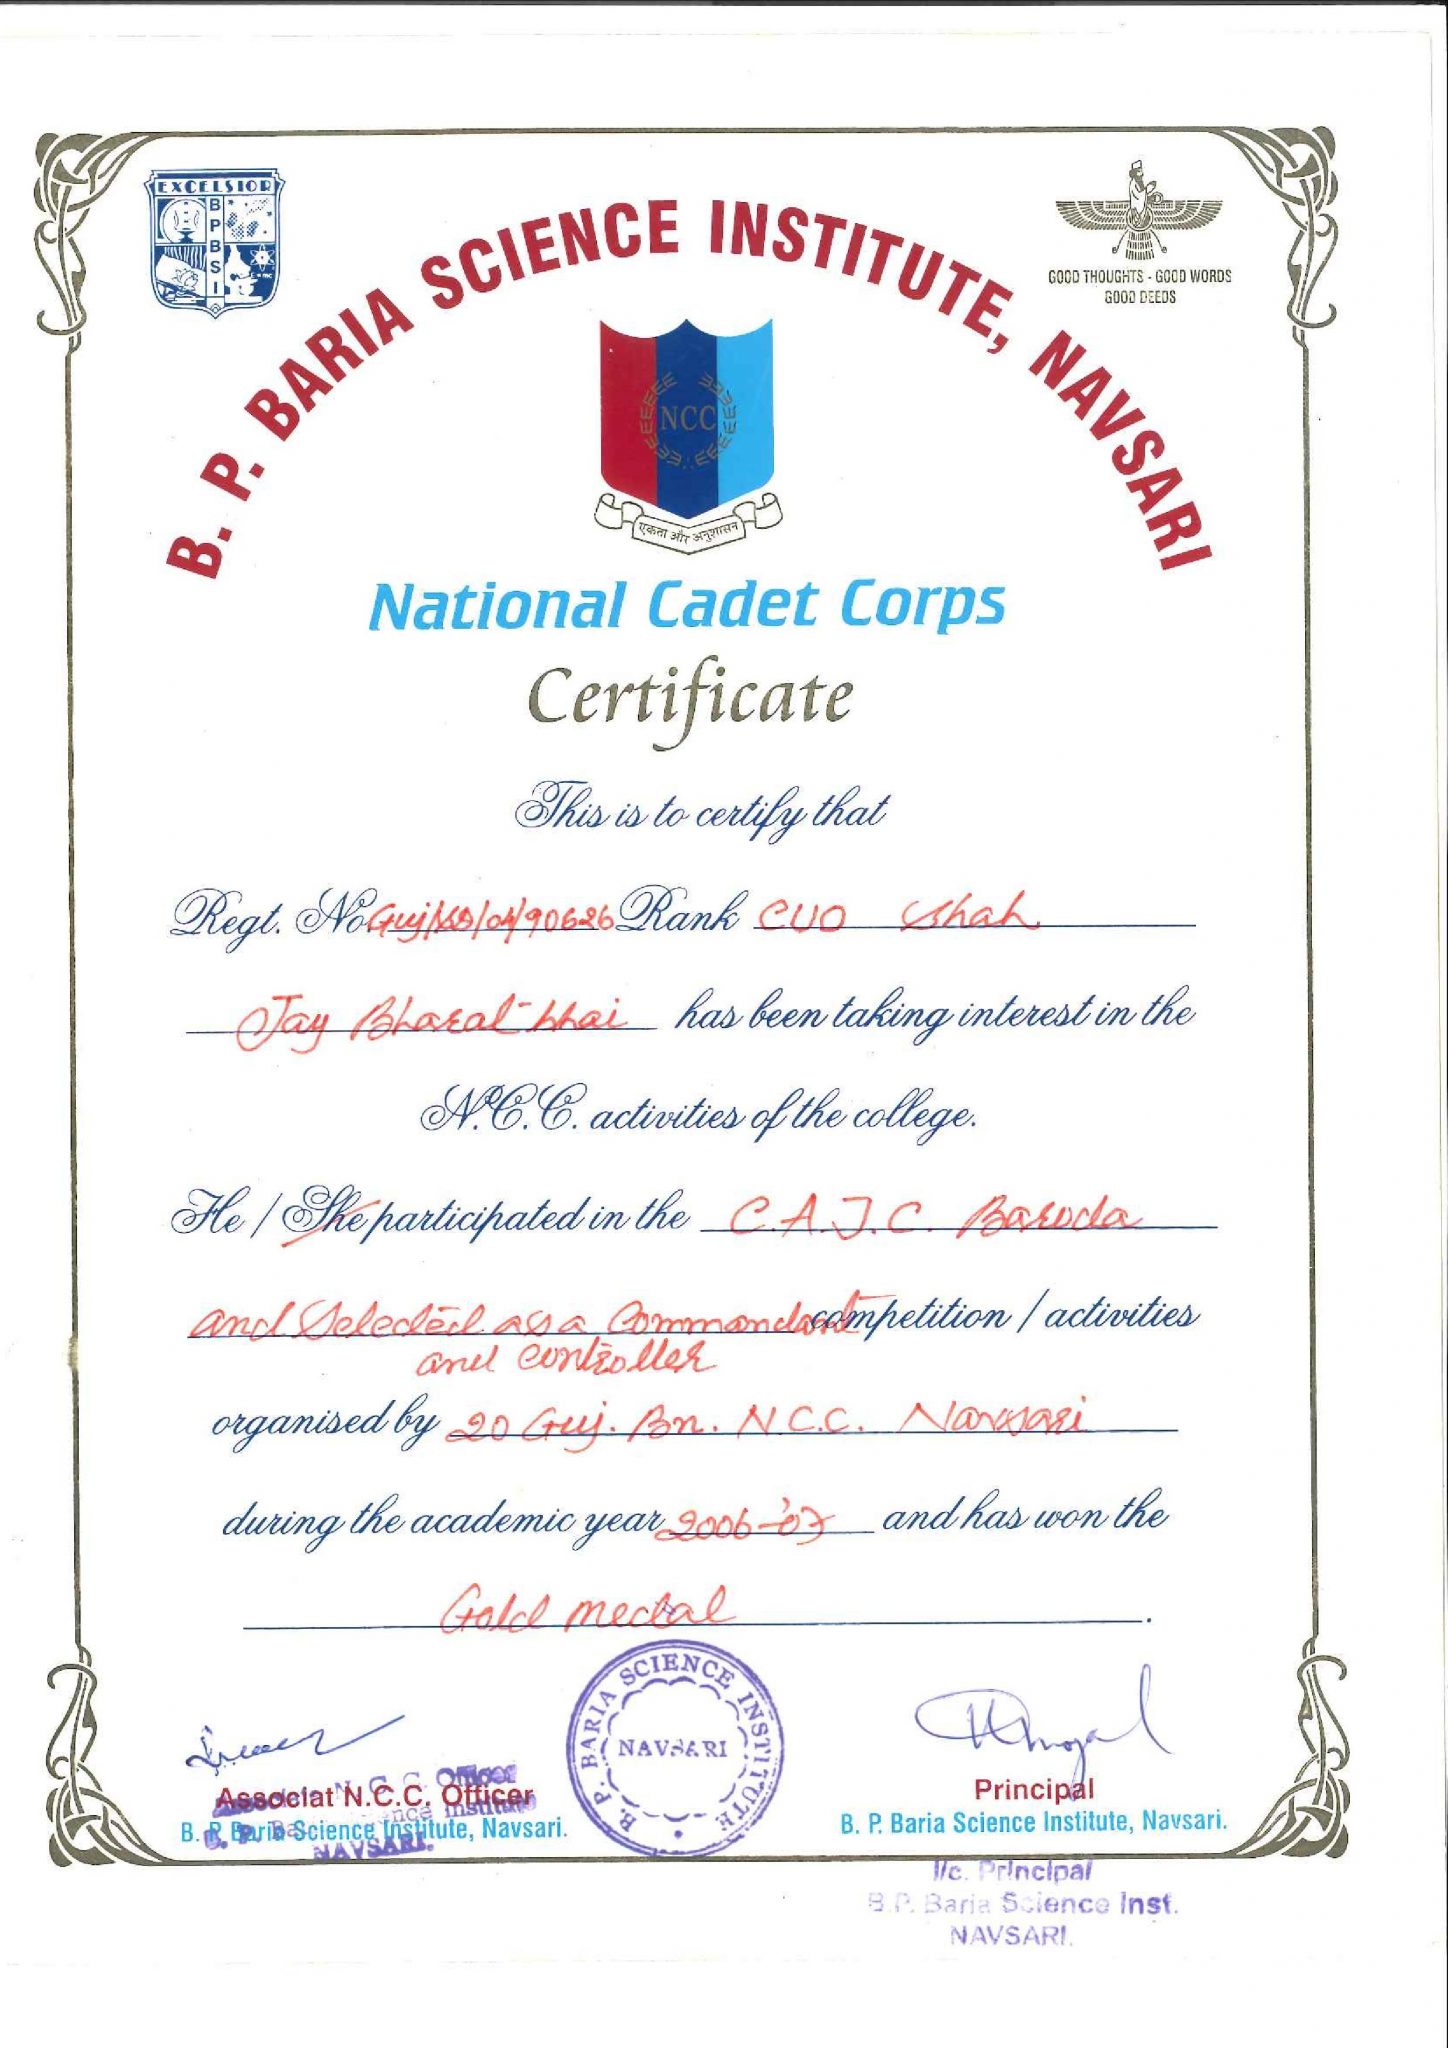 EXCELSIOR
BPBSI
GOOD THOUGHTS - GOOD WORDS
GOOD DEEDS
B. P. BARIA SCIENCE INSTITUTE, NAVSARI
NCC
एकता और अनुशासन
National Cadet Corps
Certificate
This is to certify that
Regt. No. Rank CUO Shah
Jay Bharatbhai has been taking interest in the
N.C.C. activities of the college.
He / She participated in the C.A.T.C. Baroda
and Selected as a Commandant competition / activities
and controller
organised by 20 Guj. Bn. N.C.C. Navsari
during the academic year 2006-'07 and has won the
Gold medal.
B. P. BARIA SCIENCE INSTITUTE
NAVSARI
Associat N.C.C. Officer
B. P. Baria Science Institute, Navsari.
N. C. C. Officer
Science Institute
NAVSARI.
Principal
B. P. Baria Science Institute, Navsari.
I/c. Principal
B.P. Baria Science Inst.
NAVSARI.